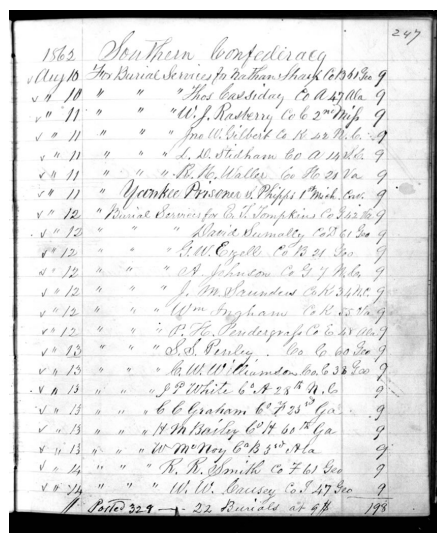 247
1862 Southern Confederacy
v Aug 10 For Burial Services for Nathan Sharp Co B 61 Geo 9
v " 10 " " " Thos Cassiday Co A 47 Ala 9
v " 11 " " " W. J. Rasberry Co C 2nd Miss 9
v " 11 " " " Jno W. Gilbert Co K 42 N.C. 9
v " 11 " " " L. D. Stidham Co A 14 9
v " 11 " " " R. H. Waller Co H 21 Va 9
v " 11 " Yankee Prisoner S. Phipps 1st Mich. Cav. 9
v " 12 " Burial Services for E. T. Tompkins Co I 42 9
v " 12 " " " David Co D 61 Geo 9
v " 12 " " " G. W. Ezell Co B 21 Geo 9
v " 12 " " " A. Johnson Co G 7 N.C. 9
v " 12 " " " J. M. Saunders Co K 34 N.C. 9
v " 12 " " " Wm Ingham Co K Va 9
v " 12 " " " P. H. Pendergrass Co E 48 Ala 9
v " 13 " " " S. S. Penley Co. C 60 Geo 9
v " 13 " " " C. W. Williamson Co. E 38 Geo 9
v " 13 " " " J P White Co A 28th N. C 9
v " 13 " " " C C Graham Co F 23rd Ga 9
v " 13 " " " H M Bailey Co H 60th Ga 9
v " 13 " " " W McNoy Co B 5th Ala 9
v " 14 " " " R. R. Smith Co F 61 Geo 9
v " 14 " " " W. W. Causey Co I 47 Geo 9
" Posted 329 22 Burials at 9$ 198